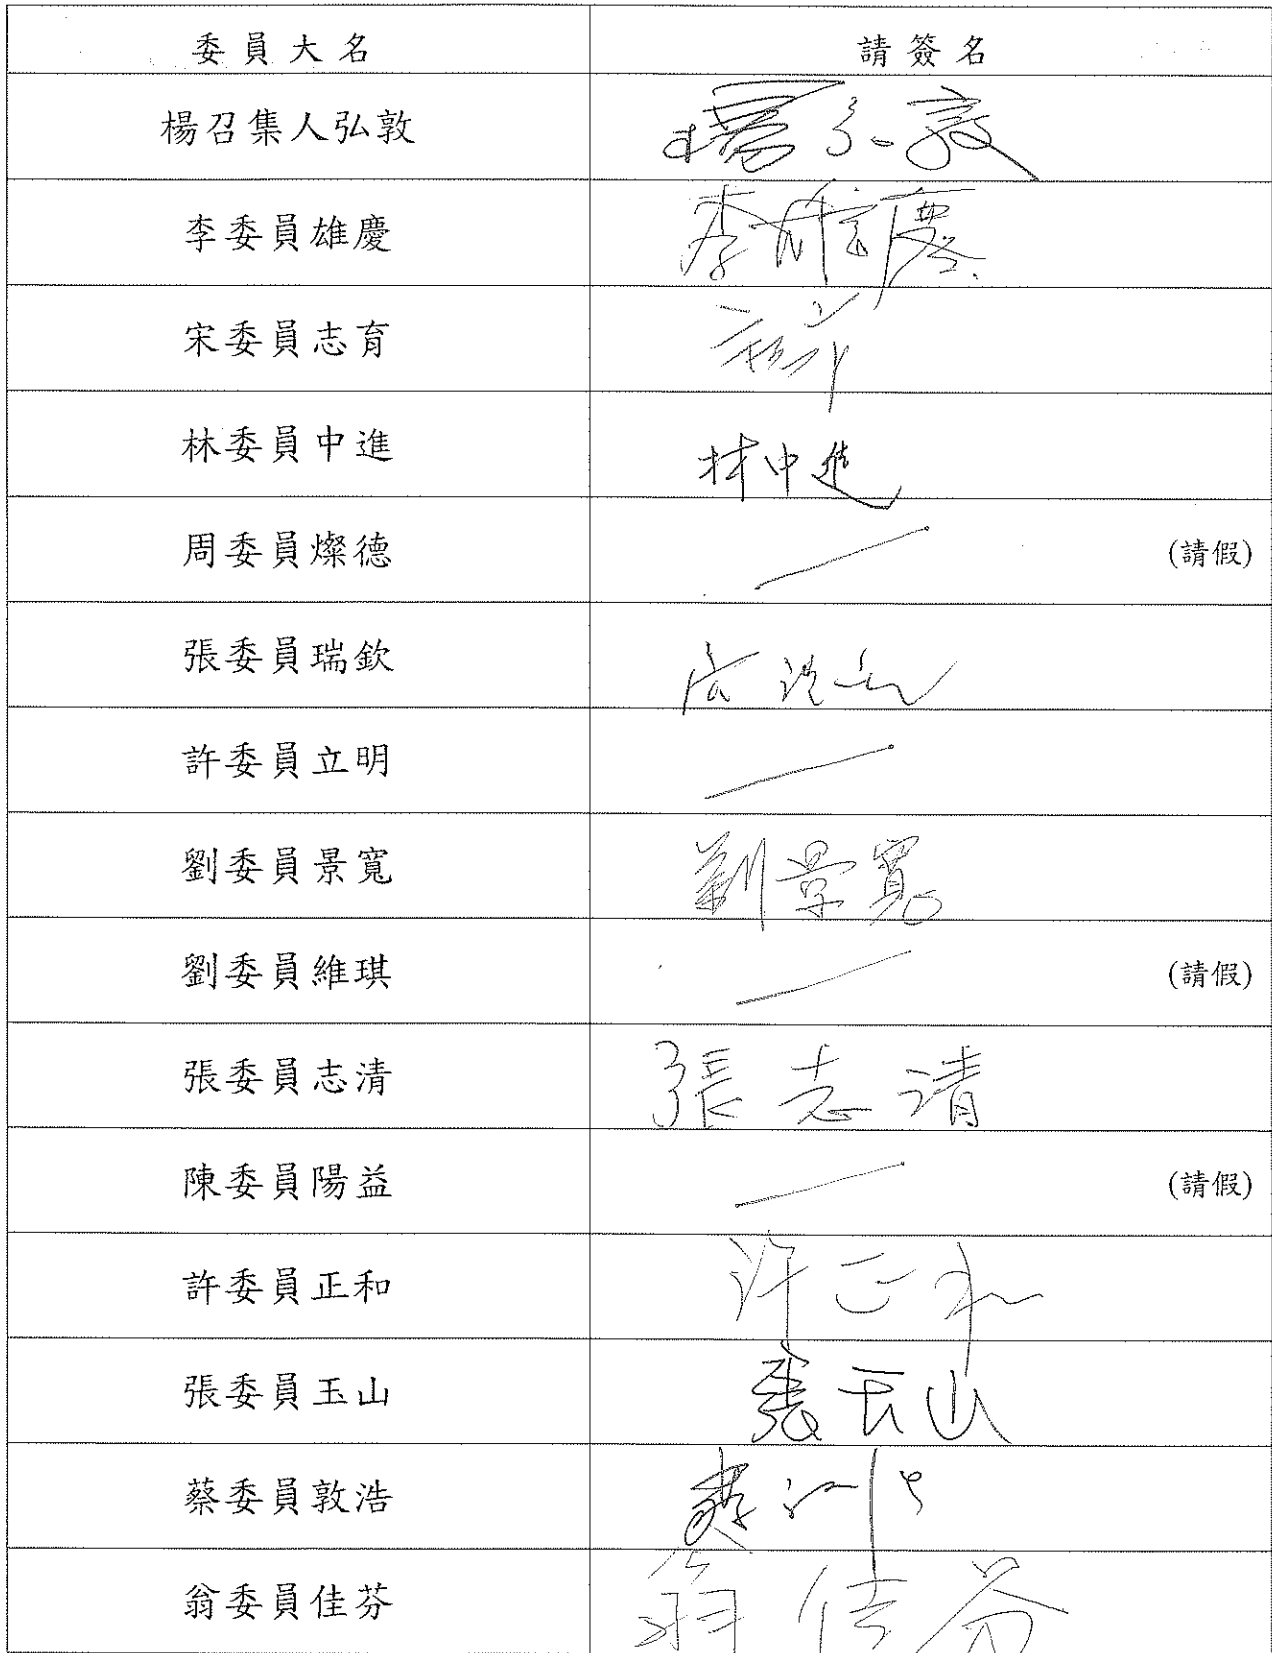 委員大名 請簽名
楊召集人弘敦 楊弘敦
李委員雄慶 李雄慶
宋委員志育
林委員中進 林中進
周委員燦德 (請假)
張委員瑞欽
許委員立明
劉委員景寬 劉景寬
劉委員維琪 (請假)
張委員志清 張志清
陳委員陽益 (請假)
許委員正和 许正和
張委員玉山 張玉山
蔡委員敦浩
翁委員佳芬 翁佳芬